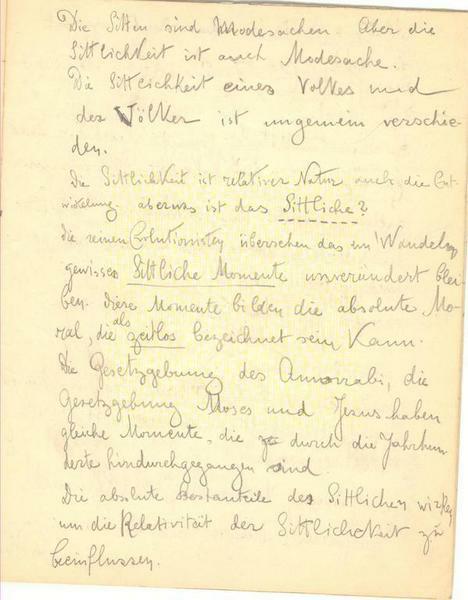 Die Sitten sind Modesachen Aber die
Sittlichkeit ist auch Modesache.
Die Sittlichkeit eines Volkes und
der Völker ist ungemein verschie-
den.
Die Sittlichkeit ist relativer Natur auch die Ent-
wickelung. aber was ist das Sittliche?
Die reinen Evolutionisten übersehen das im Wandel
gewisse Sittliche Momente unverändert blei-
ben. diese Momente bilden die absolute Mo-
ral, die als zeitlos bezeichnet sein Kann.
Die Gesetzgebung des Amorrabi, die
Gesetzgebung Moses und Jesus haben
gleiche Momente, die durch die Jahrhun-
derte hindurchgegangen sind.
Die abslute Bestanteile des Sittlichen wirken
um die Relativität der Sittlichkeit zu
beinflussen.